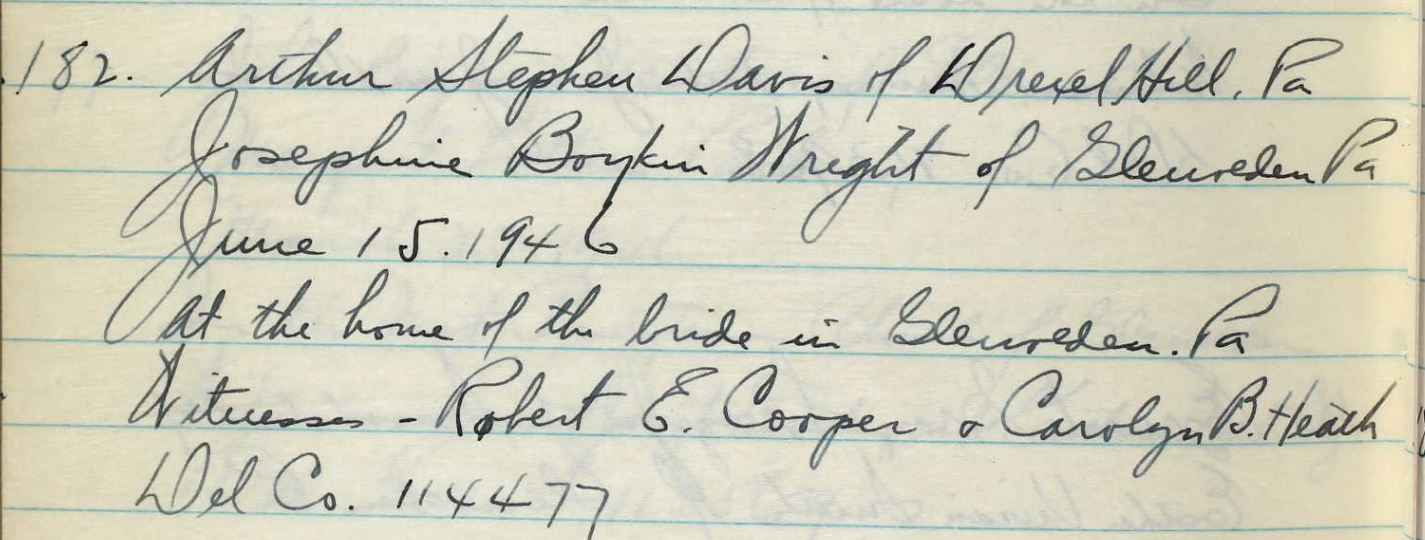 182. Arthur Stephen Davis of Drexel Hill, Pa
Josephine Boykin Wright of Glenolden Pa
June 15. 1946
At the home of the bride in Glenolden. Pa
Witnesses - Robert E. Cooper & Carolyn B. Heath
Del Co. 114477